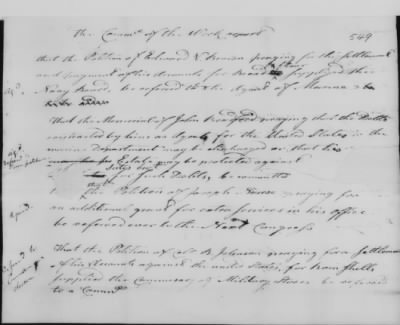 The Committ of the Week report
549
that the Petition of Edward & praying for the Settlement
and payment of his demands for Bread &c Supplied the
Navy Board, be referred to the Agent of Marine
That the Memorial of John Bradford praying that the Debts
contracted by him as Agent for the United States in the
marine Department may be discharged or that his
Estate may be protected against
for such Debts, be
that the Petition of Joseph Nourse praying for
an additional grant for extra services in his office
be referred over to the Next Congress
That the Petition of praying for a Settlement
of his Accounts against the united States, for Bomb Shells
supplied the Commissary of Military Stores be referred
to a Committ